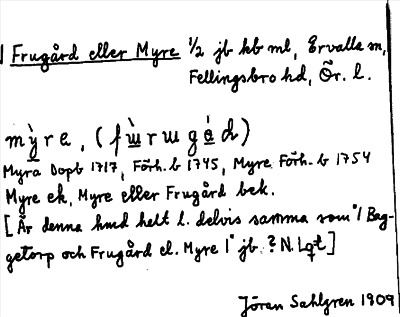 Frugård eller Myre 1/2 jb kb ml, Ervalla sn,
Fellingsbro hd, Ör. l.
mỳre, (fẁrɯgɵ́d)
Myra Dopb 1717, Förh.b 1745, Myre Förh.b 1754
Myre ek, Myre eller Frugård bek.
[Är denna hmd helt l. delvis samma som "1 Bag-
getorp och Frugård el. Myre 1" jb ? N. Lqt]
Jöran Sahlgren 1909